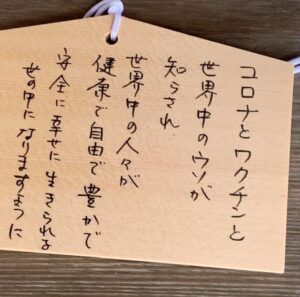 コロナとワクチンと
世界中のウソが
知らされ
世界中の人々が
健康で自由で豊かで
安全に幸せに生きられる
世の中になりますように